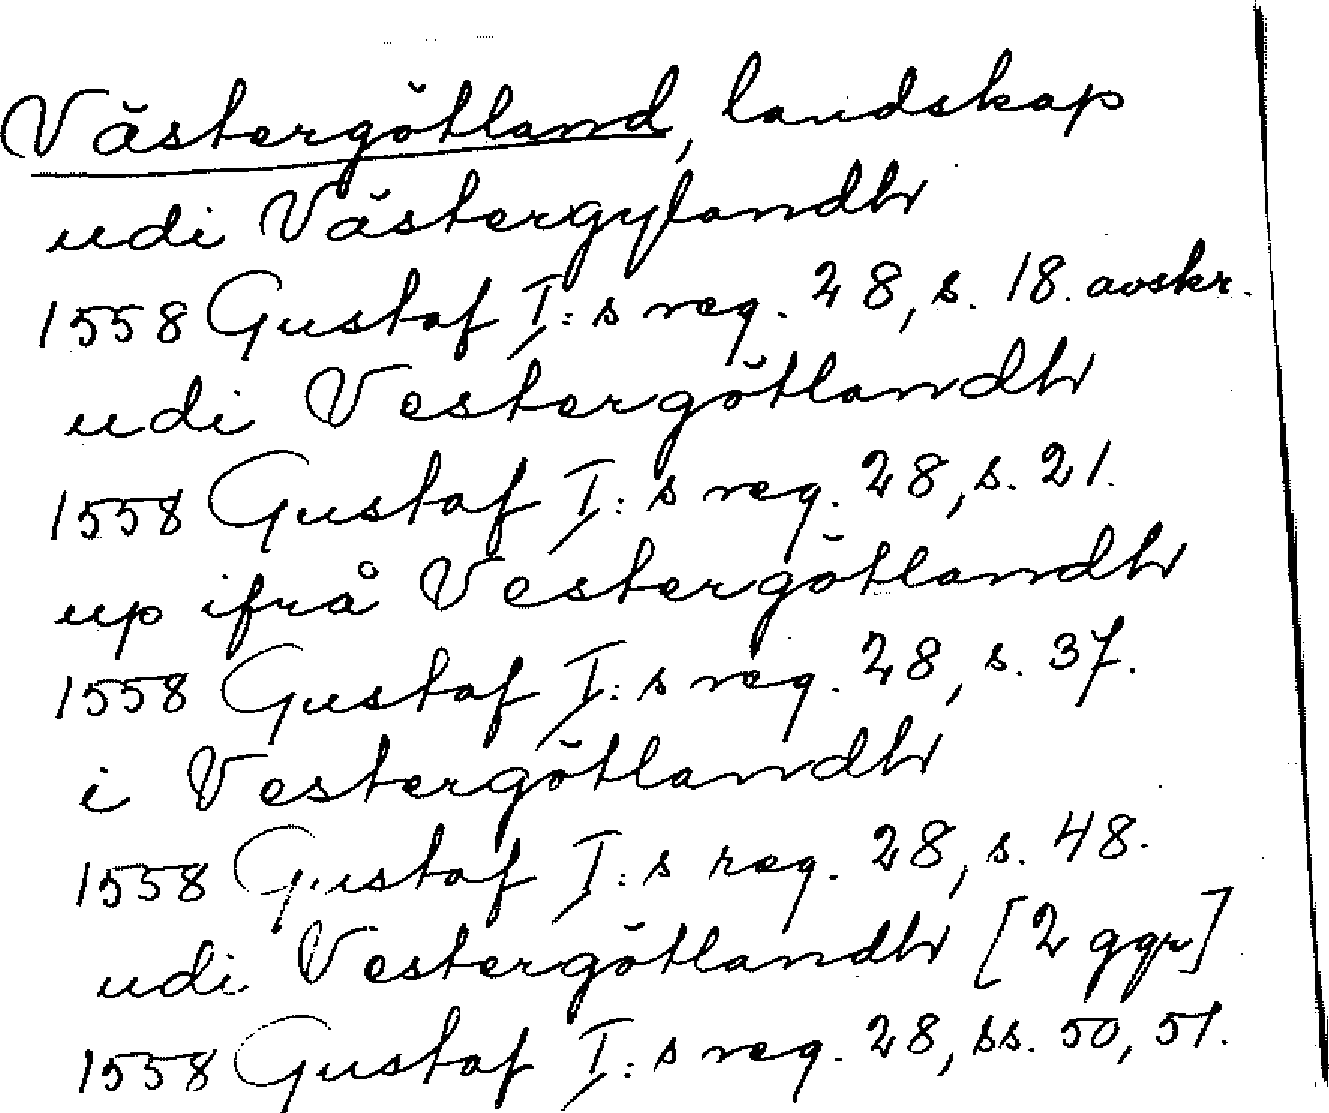 Västergötland, landskap
udi Västergylandh
1558 Gustaf I:s reg. 28, s. 18. avskr.
udi Vestergötlandh
1558 Gustaf I:s reg. 28, s. 21.
up ifrå Vestergötlandh
1558 Gustaf I:s reg. 28, s. 37.
i Vestergötlandh
1558 Gustaf I:s reg. 28, s. 48.
udi Vestergötlandh [2 ggr]
1558 Gustaf I:s reg. 28, ss. 50, 51.